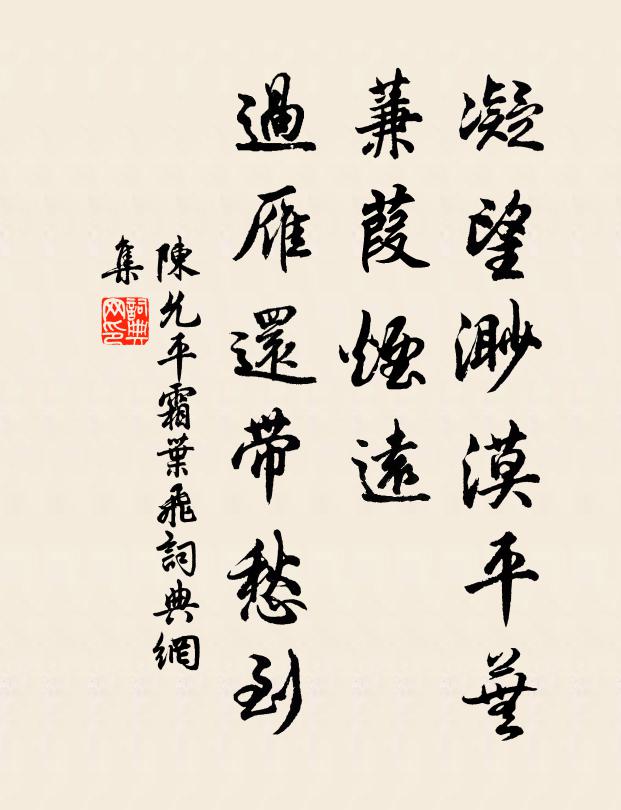 凝望渺漠平蕪
蒹葭煙遠
過雁還帶愁到
陳允平霜葉飛詞典網
集
詞典
网印